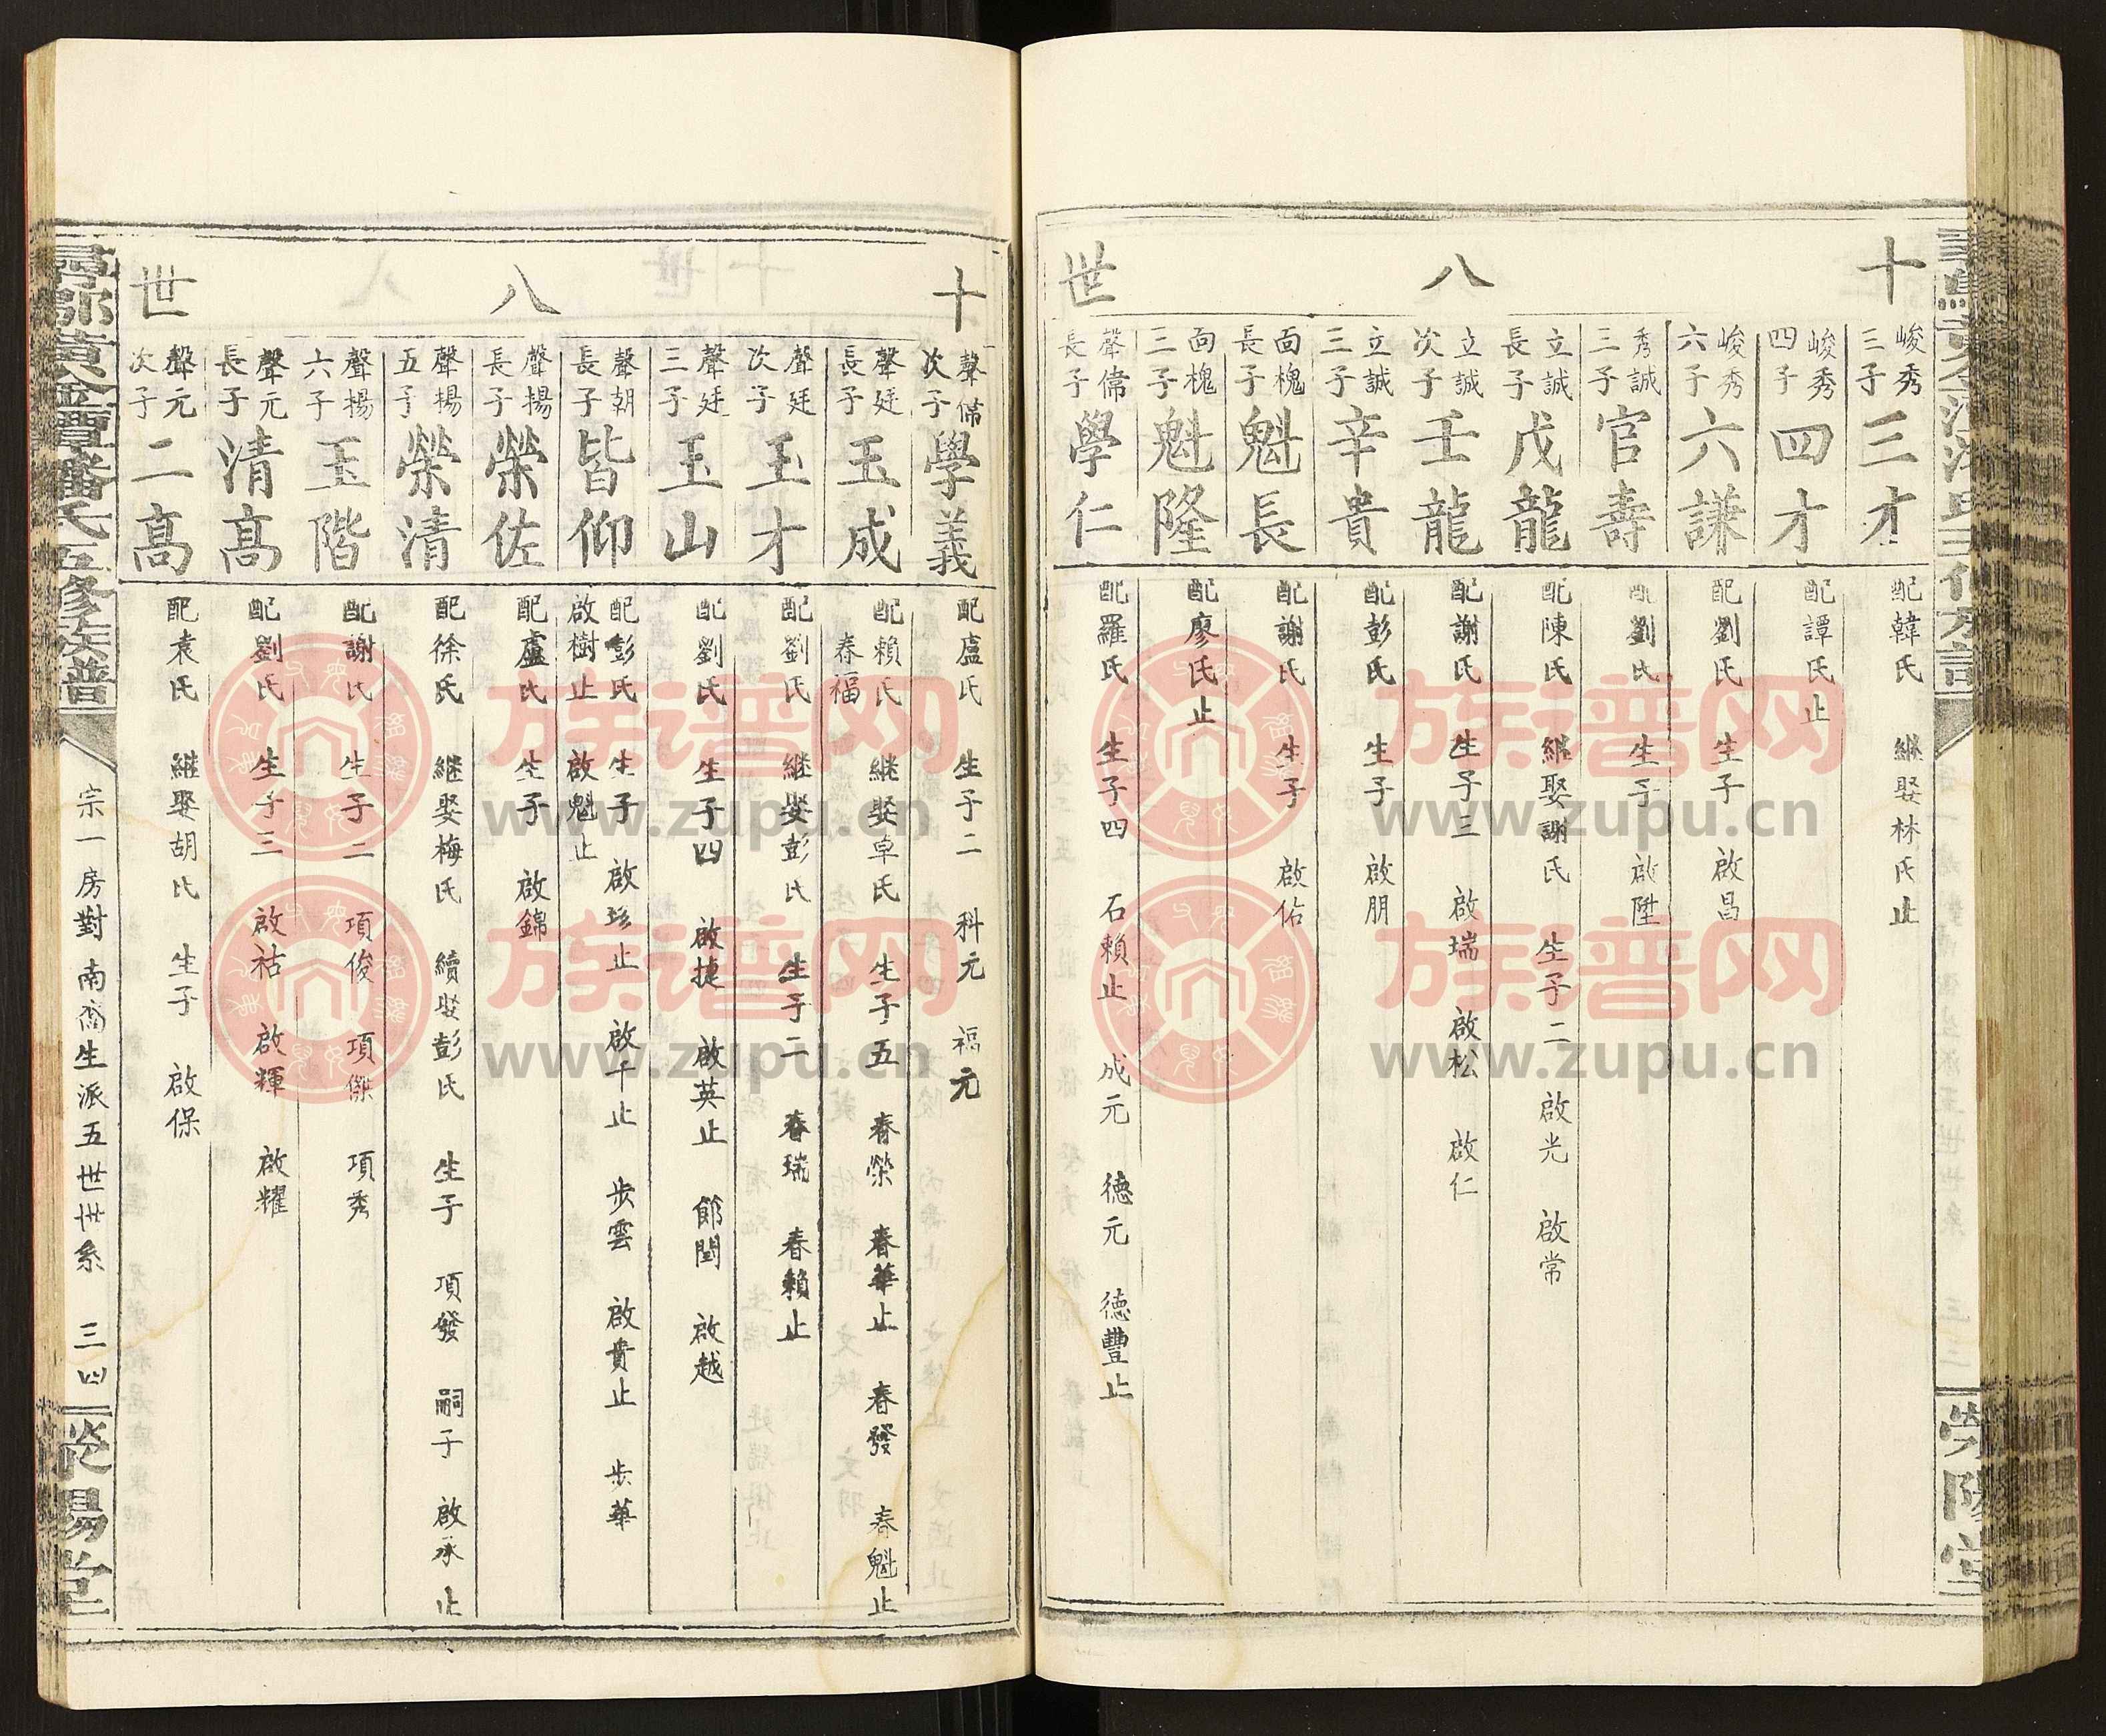 十八世
峻秀三子 三才 配韓氏 継娶林氏止
峻秀四子 四才 配譚氏止
峻秀六子 六謙 配劉氏 生子 啟昌
秀誠三子 官壽 配劉氏 生子 啟陞
立誠長子 戊龍 配陳氏 継娶謝氏 生子二 啟光 啟常
立誠次子 壬龍 配謝氏 生子三 啟瑞 啟松 啟仁
立誠三子 辛貴 配彭氏 生子 啟朋
面槐長子 魁長 配謝氏 生子 啟佑
面槐三子 魁隆 配廖氏止
聲儒長子 學仁 配羅氏 生子四 石賴止 成元 德元 德豐止
十八世
聲儒次子 學義 配盧氏 生子二 科元 福元
聲廷長子 玉成 配賴氏 継娶卓氏 生子五 春榮 春華止 春發 春魁止
春福
聲廷次子 玉才 配劉氏 継娶彭氏 生子二 春瑞 春賴止
聲廷三子 玉山 配劉氏 生子四 啟捷 啟英止 郎閏 啟越
聲朝長子 皆仰 配彭氏 生子 啟珍止 啟千止 步雲 啟貴止 步華
啟樹止 啟魁止
聲揚長子 榮佐 配盧氏 生子 啟錦
聲揚五子 榮清 配徐氏 継娶梅氏 續娶彭氏 生子 項發 嗣子 啟承止
聲揚六子 玉階 配謝氏 生子二 項俊 項傑 項秀
聲元長子 清高 配劉氏 生子三 啟祜 啟輝 啟耀
聲元次子 二高 配袁氏 継娶胡氏 生子 啟保
尋鄔黃金潭潘氏五修族譜
宗一房對南裔生派五世世系 三四
滎陽堂
族谱网
www.zupu.cn
族谱网
www.zupu.cn
族谱网
www.zupu.cn
族谱网
www.zupu.cn